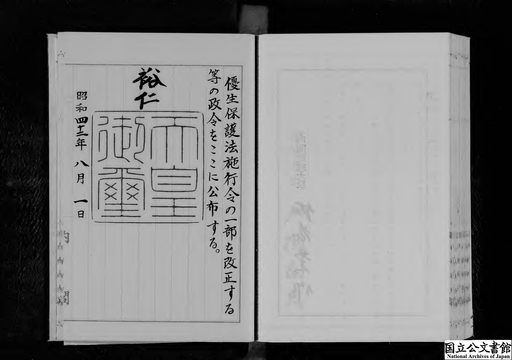 優生保護法施行令の一部を改正する
等の政令をここに公布する。
裕仁
天皇
御璽
昭和四十三年八月一日
内閣
国立公文書館
National Archives of Japan